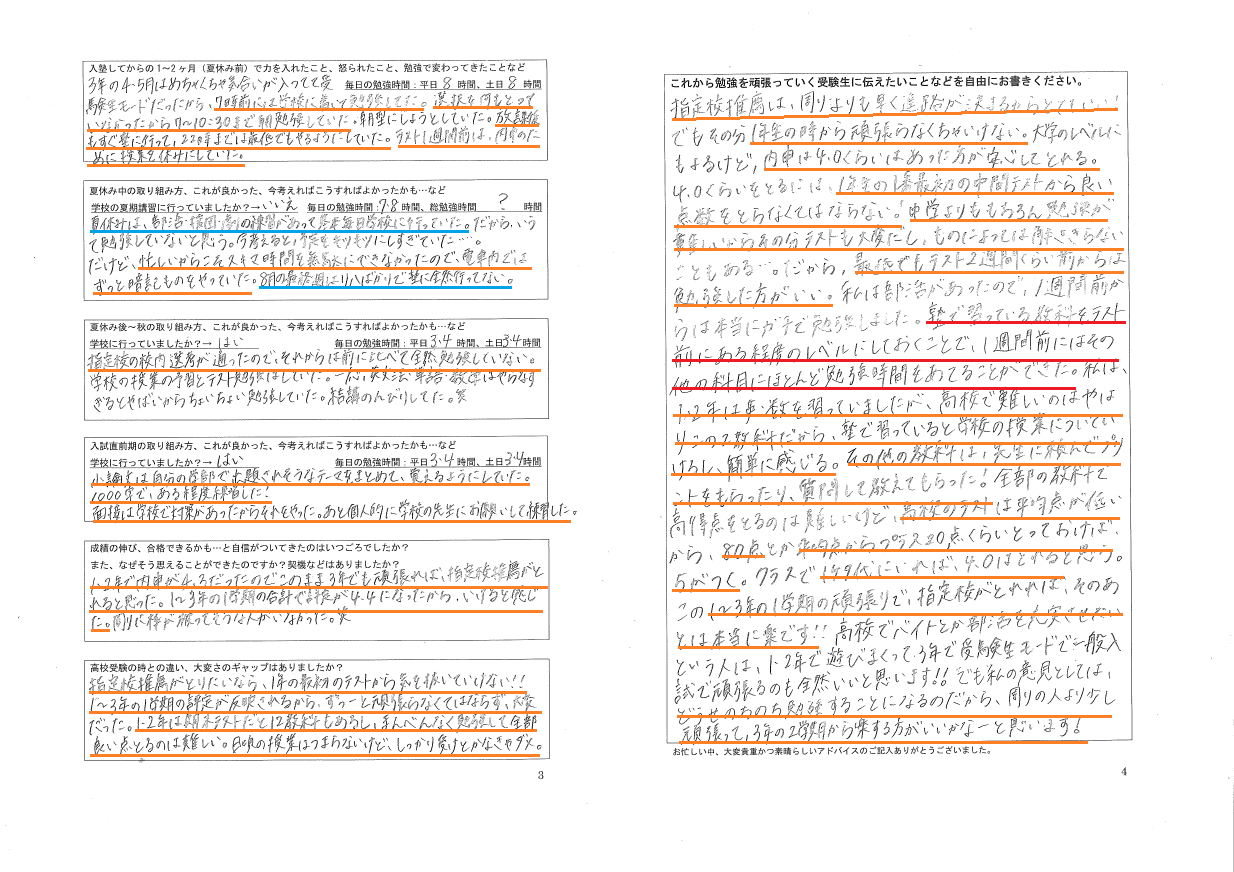 入塾してからの1～2ヶ月（夏休み前）で力を入れたこと、怒られたこと、勉強で変わってきたことなど
3年の4・5月はめちゃくちゃ気合いが入ってて受 毎日の勉強時間：平日 8 時間、土日 8 時間
験生モードだったから、7時前には学校に着いて勉強してた。選択を何もとって
いなかったから7～10:30まで朝勉強していた。朝型にしようとしていた。放課後
もすぐ塾に行って、22時までは最低でもやるようにしていた。テスト1週間前は、内申のた
めに授業を休みにしていた。
夏休み中の取り組み方、これが良かった、今考えればこうすればよかったかも…など
学校の夏期講習に行っていましたか？→ いいえ 毎日の勉強時間：7・8 時間、総勉強時間 ? 時間
夏休みは、部活・の練習があってほぼ毎日学校に行っていた。だから、いう
て勉強していないと思う。今考えると、予定をもりもりにしすぎていた…。
だけど、忙しいからこそスキマ時間を無駄にできなかったので、電車内では
ずっと暗記ものをやっていた。8月の最終週はリハばかりで塾に全然行ってない。
夏休み後～秋の取り組み方、これが良かった、今考えればこうすればよかったかも…など
学校に行っていましたか？→ はい 毎日の勉強時間：平日 3・4 時間、土日 3・4 時間
指定校の校内選考が通ったので、それからは前に比べて全然勉強していない。
学校の授業の予習とテスト勉強はしていた。一応、英文法・単語・数学はやらなす
ぎるとやばいからちょいちょい勉強していた。結構のんびりしてた。笑
入試直前期の取り組み方、これが良かった、今考えればこうすればよかったかも…など
学校に行っていましたか？→ はい 毎日の勉強時間：平日 3・4 時間、土日 3・4 時間
小論文は自分の学部で出題されそうなテーマをまとめて、覚えるようにしていた。
1000字で、ある程度練習した！
面接は学校で対策があったからそれをやった。あと個人的に学校の先生にお願いして練習した。
成績の伸び、合格できるかも…と自信がついてきたのはいつごろでしたか？
また、なぜそう思えることができたのですか？契機などはありましたか？
1・2年で内申が4.3だったのでこのまま3年でも頑張れば、指定校推薦がと
れると思った。1～3年の1学期の合計で評定が4.4になったから、いけると感じ
た。周りに枠が被ってそうな人がいなかった。笑
高校受験の時との違い、大変さのギャップはありましたか？
指定校推薦がとりたいなら、1年の最初のテストから気を抜いていけない！！
1～3年の1学期の評定が反映されるから、ずっーと頑張らなくてはならず、大変
だった。1・2年は期末テストだと12教科もあるし、まんべんなく勉強して全部
良い点とるのは難しい。日頃の授業はつまらないけど、しっかり受けとかなきゃダメ。
3
これから勉強を頑張っていく受験生に伝えたいことなどを自由にお書きください。
指定校推薦は、周りよりも早く進路が決まるからとてもいい
でもその分1年生の時から頑張らなくちゃいけない。大学のレベルに
もよるけど、内申は4.0くらいはあった方が安心してとれる。
4.0くらいをとるには、1年の1番最初の中間テストから良い
点数をとらなくてはならない。中学よりももちろん勉強が
難しいからその分テストも大変だし、ものによっては解ききらない
こともある…。だから、最低でもテスト2週間くらい前からは
勉強した方がいい。私は部活があったので、1週間前か
らは本当にガチで勉強しました。塾で習っている教科をテスト
前にある程度のレベルにしておくことで、1週間前にはその
他の科目にほとんど勉強時間をあてることができた。私は、
1・2年は英・数を習っていましたが、高校で難しいのはやは
りこの2教科だから、塾で習っていると学校の授業についてい
けるし、簡単に感じる。その他の教科は、先生に頼んでプリ
ントをもらったり、質問して教えてもらった！全部の教科で
高得点をとるのは難しいけど、高校のテストは平均点が低い
から、80点とか平均点からプラス20点くらいとっておけば、
5がつく。クラスで1ケタ代にいれば、4.0はとれると思う。
この1～3年の1学期の頑張りで、指定校がとれれば、そのあ
とは本当に楽です！！高校でバイトとか部活を充実させたい
という人は、1・2年で遊びまくって3年で受験生モードで一般入
試で頑張るのも全然いいと思います！！でも私の意見としては、
どうせのちのち勉強することになるのだから、周りの人より少し
頑張って、3年の2学期から楽する方がいいかなーと思います！
お忙しい中、大変貴重かつ素晴らしいアドバイスのご記入ありがとうございました。
4